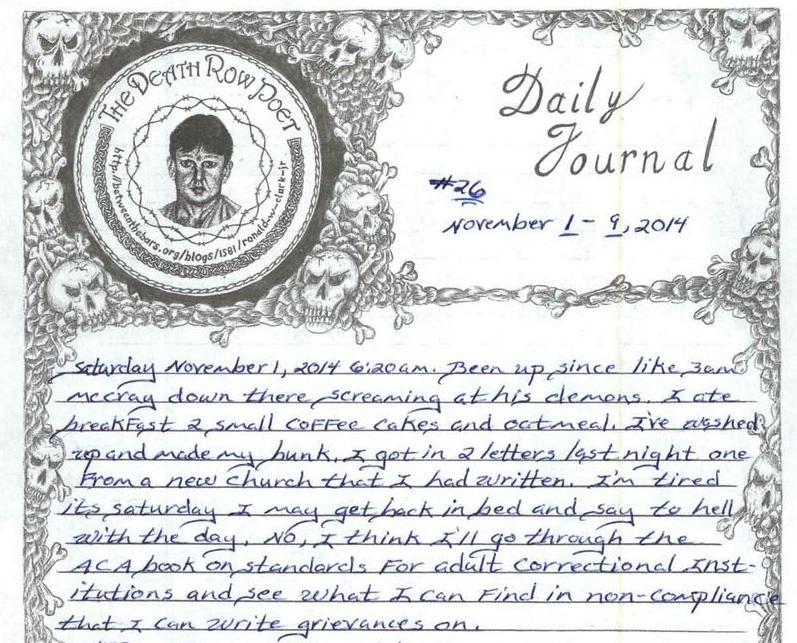 THE DEATH ROW POET
http://betweenthebars.org/blogs/1581/ronald-w-clark-jr
Daily
Journal
#26
November 1 - 9, 2014
Saturday November 1, 2014 6:20am. Been up since like 3am
mccray down there screaming at his demons. I ate
breakfast 2 small coffee cakes and oatmeal. I've washed
up and made my bunk. I got in 2 letters last night one
from a new church that I had written. I'm tired
its saturday I may get back in bed and say to hell
with the day. NO, I think I'll go through the
ACA book on standards for adult correctional Inst-
itutions and see what I can find in non-compliance
that I can write grievances on.